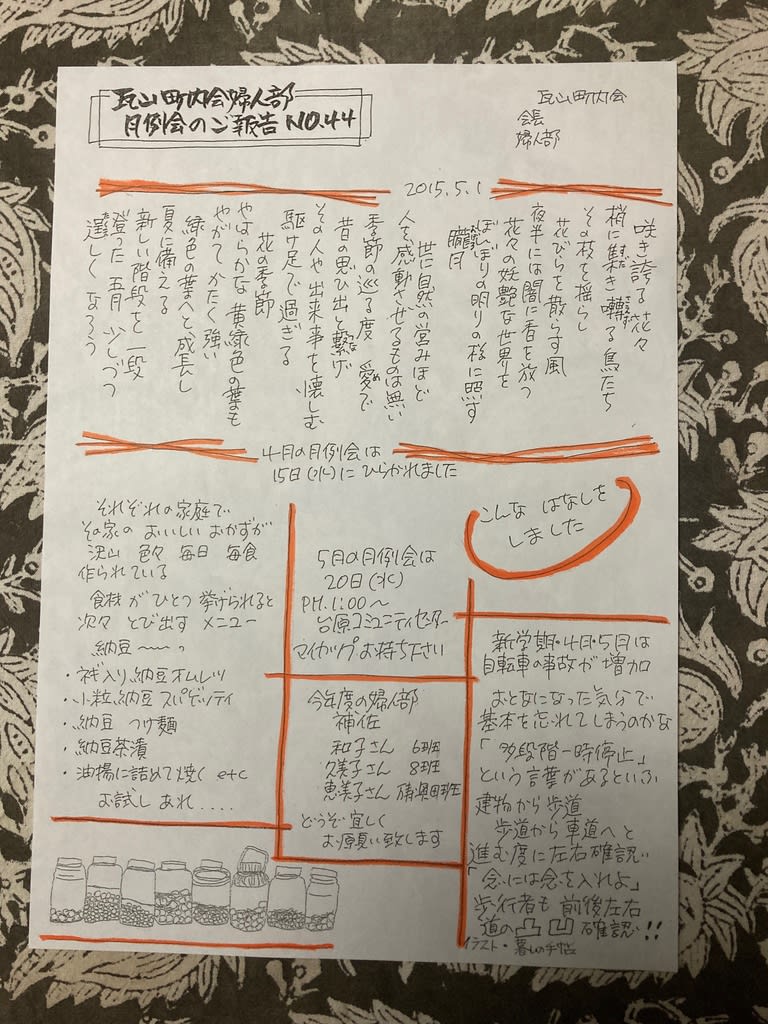 瓦山町内会婦人部
月例会のご報告 NO.44
瓦山町内会
会長
婦人部
2015.5.1
咲き誇る花々
梢に集き囀る鳥たち
その枝を揺らし
花びらを散らす風
夜半には闇に香を放つ
花々の妖艶な世界を
ぼんぼりの明りの様に照す
朧月
世に自然の営みほど
人を感動させるものは無い
季節の巡る度 愛で
昔の思ひ出と繋げ
その人や出来事を懐しむ
駆け足で過ぎる
花の季節
やはらかな黄緑色の葉も
やがて かたく強い
緑色の葉へと成長し
夏に備える
新しい階段を一段
登った 五月 少しづつ
逞しくなろう
4月の月例会は
15日(水)にひらかれました
こんな はなしを
しました
それぞれの家庭で
その家の おいしい おかずが
沢山 色々 毎日 毎食
作られている
食材が ひとつ 挙げられると
次々 とび出す メニュー
納豆〜〜っ
・ネギ入り納豆オムレツ
・小粒納豆スパゲッティ
・納豆 つけ麺
・納豆茶漬
・油揚に詰めて焼く etc
お試し あれ....
5月の月例会は
20日(水)
PM.1:00〜
台原コミュニティセンター
マイカップお持ち下さい
今年度の婦人部
補佐
和子さん 6班
久美子さん 8班
恵美子さん
どうぞ宜しく
お願い致します
新学期・4月・5月は
自転車の事故が 増加
おとなになった気分で
基本を忘れてしまうのかな
「多段階一時停止」
という言葉があるといふ
建物から歩道
歩道から車道へと
進む度に左右確認
「念には念を入れよ」
歩行者も 前後左右
道の凸凹 確認!!
イラスト・暮しの手帖